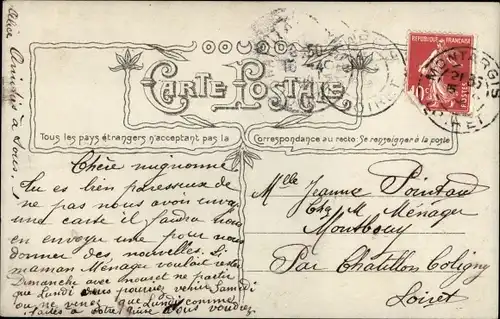 Alice Amitiés à tous.
REPUBLIQUE FRANÇAISE
10c
POSTES
MONTARGIS
21
LOIRET
CARTE POSTALE
Tous les pays étrangers n'acceptant pas la
Correspondance au recto. Se renseigner à la poste
Chère mignonne
Tu es bien paresseuse de
ne pas nous avoir envoyé
une carte il faudra nous
en envoyer une pour nous
donner des nouvelles. Si
maman Ménager voulait rester
Dimanche avec mouset ne partir
que Lundi vous pourrez venir Samedi
ou ne venez que Lundi comme
faites à votre guise vous voudrez
Melle Jeanne Pointard
Chez M Ménager
Montbouy
Par Châtillon Coligny
Loiret